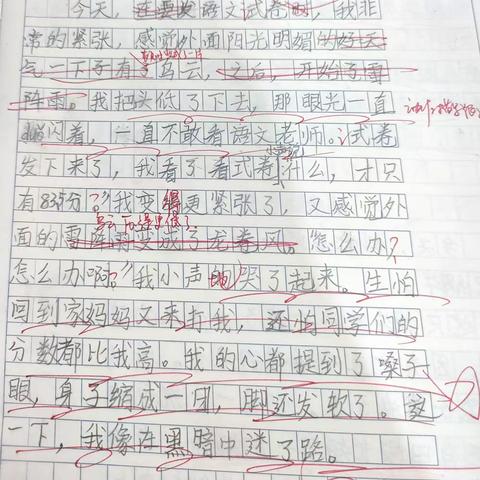 今天，还要发语文试卷呢，我非
常的紧张，感觉外面阳光明媚的好天
气一下子有了乌云，之后，开始了雷
阵雨。我把头低了下去，那眼光一直
躲闪着，一直不敢看语文老师。试卷
发下来了，我看了看试卷，什么，才只
有83.5分？”我变得更紧张了，又感觉外
面的雷阵雨变成了龙卷风。怎么办？
怎么办啊？”我小声的哭了起来。生怕
回到家妈妈又来打我，还怕同学们的
分数都比我高。我的心都提到了嗓子
眼，身子缩成一团，脚还发软了。这
一下，我像在黑暗中迷了路。